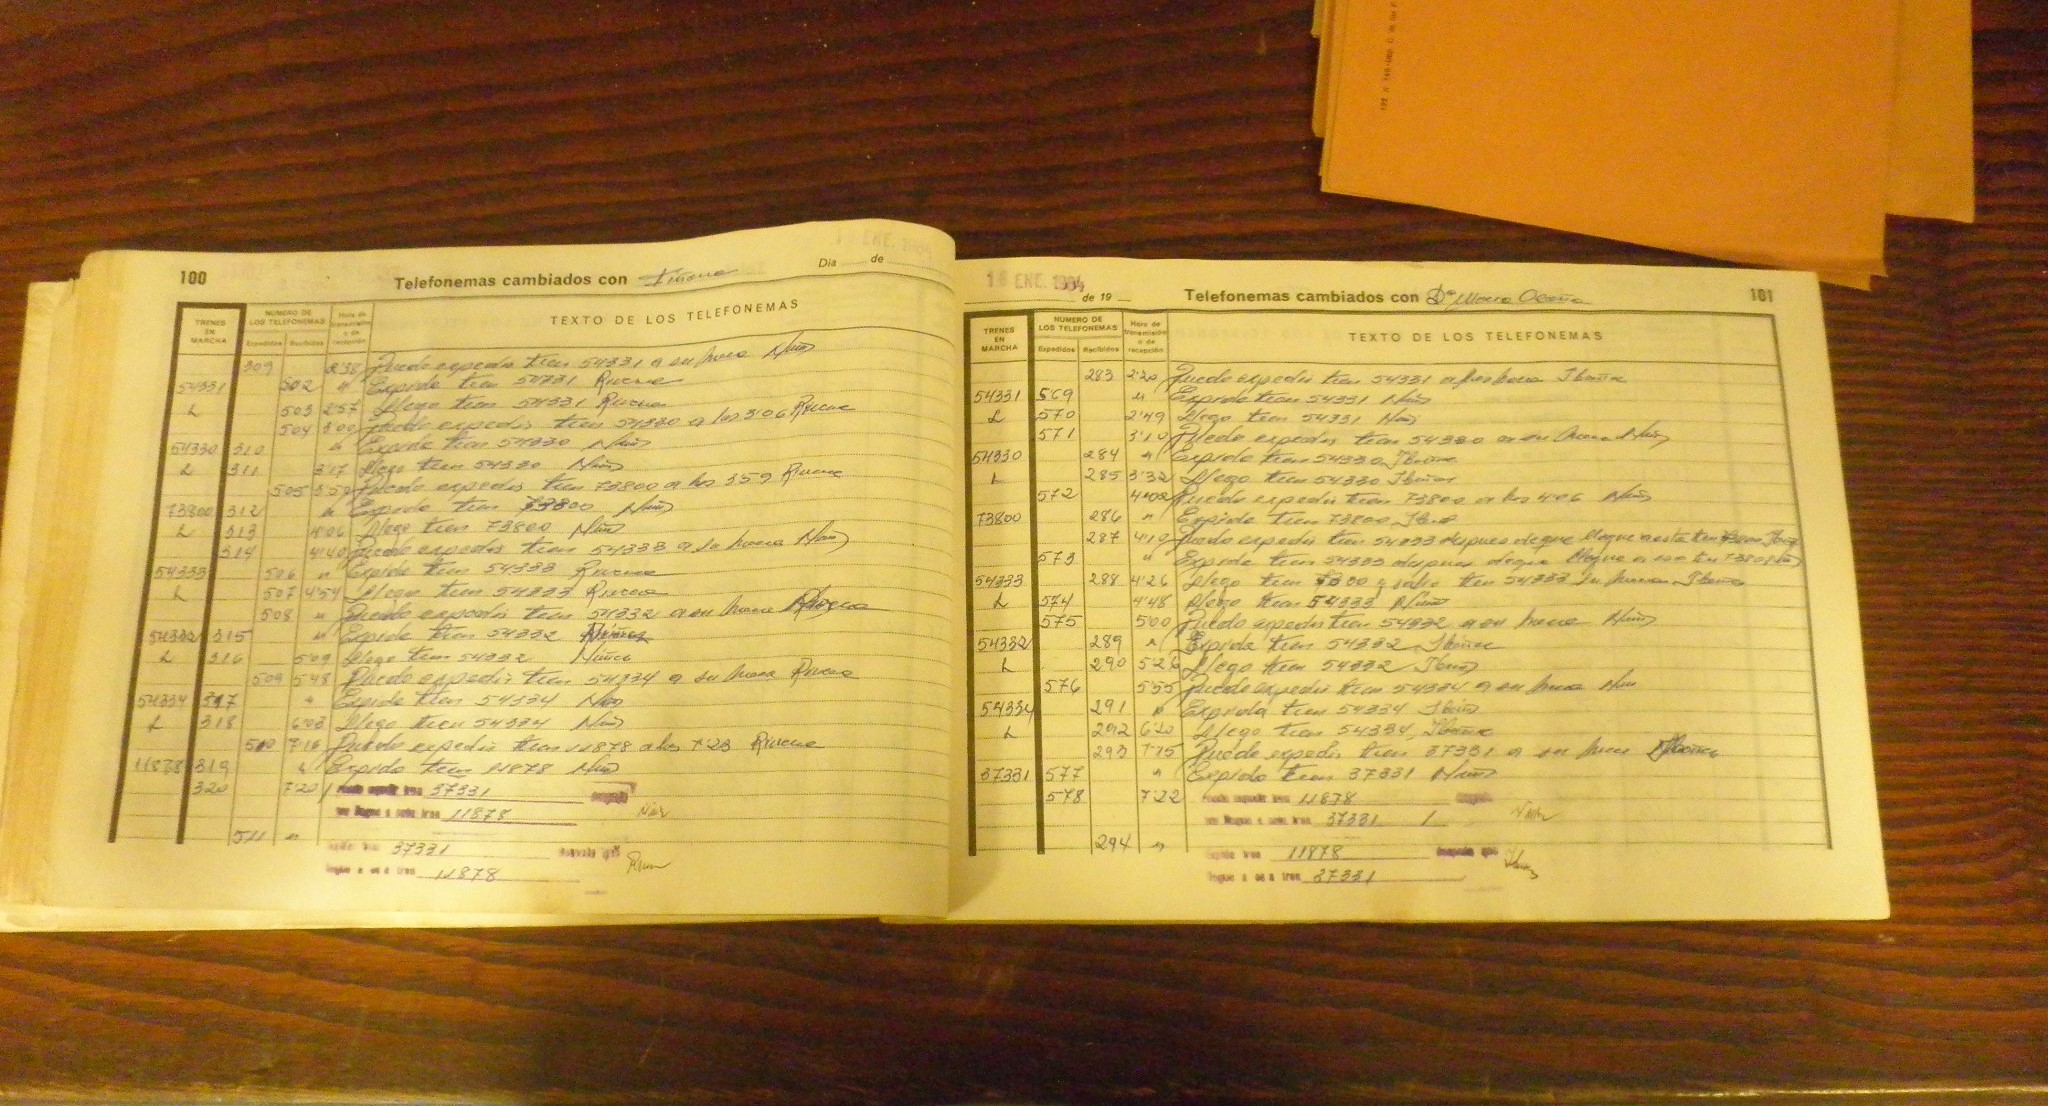 100 Telefonemas cambiados con Fiñana Dia de
ENE. 1984
TRENES EN MARCHA
NUMERO DE LOS TELEFONEMAS
Expedidos Recibidos
Hora de transmisión o de recepción
TEXTO DE LOS TELEFONEMAS
309 2'38 Puedo expedir tren 54331 a su hora Núñ
54331 502 " Expido tren 54331
L 503 2'57 Llego tren 54331
504 3'00 Puedo expedir tren 54330 a las 3'06
54330 310 " Expido tren 54330 Núñ
L 311 3'17 Llego tren 54330 Núñ
505 3'50 Puedo expedir tren 73800 a las 3'59
73800 312 " Expido tren 73800 Núñ
L 313 4'06 Llego tren 73800 Núñ
314 4'40 Puedo expedir tren 54333 a su hora Núñ
54333 506 " Expido tren 54333
L 507 4'54 Llego tren 54333
508 " Puedo expedir tren 54332 a su hora
54332 315 " Expido tren 54332
L 316 5'09 Llego tren 54332 Núñez
509 5'48 Puedo expedir tren 54334 a su hora
54334 317 " Expido tren 54334 Núñ
L 318 6'03 Llego tren 54334 Núñ
510 7'16 Puedo expedir tren 11878 a las 7'23
11878 319 " Expido tren 11878 Núñ
320 7'20 Puedo expedir tren 37331 después
que llegue a este tren 11878 Núñ
511 " Expido tren 37331 después que
llegue a esa tren 11878
18 ENE. 1984
de 19 Telefonemas cambiados con Dª Maria Ocaña 101
TRENES EN MARCHA
NUMERO DE LOS TELEFONEMAS
Expedidos Recibidos
Hora de transmisión o de recepción
TEXTO DE LOS TELEFONEMAS
283 2'20 Puedo expedir tren 54331 a su hora Ibañez
54331 569 " Expido tren 54331 Núñ
L 570 2'49 Llego tren 54331 Núñ
571 3'10 Puedo expedir tren 54330 a su hora Núñ
54330 284 " Expido tren 54330 Ibañez
L 285 3'32 Llego tren 54330 Ibañez
572 4'02 Puedo expedir tren 73800 a las 4'06 Núñ
73800 286 " Expido tren 73800 Ibañ
287 4'19 Puedo expedir tren 54333 despues de que llegue a esta tren 73800 Ibañ
573 " Expido tren 54333 despues de que llegue a esa tren 73800
54333 288 4'26 Llego tren 73800 y salio tren 54333 su hora Ibañez
L 574 4'48 Llego tren 54333 Núñ
575 5'00 Puedo expedir tren 54332 a su hora Núñ
54332 289 " Expido tren 54332 Ibañez
L 290 5'26 Llego tren 54332 Ibañ
576 5'55 Puedo expedir tren 54334 a su hora Núñ
54334 291 " Expido tren 54334 Ibañ
L 292 6'20 Llego tren 54334 Ibañez
293 7'15 Puedo expedir tren 37331 a su hora Ibañez
37331 577 " Expido tren 37331 Núñ
578 7'22 Puedo expedir tren 11878 después
que llegue a este tren 37331 Núñ
294 " Expido tren 11878 después que
llegue a esa tren 37331